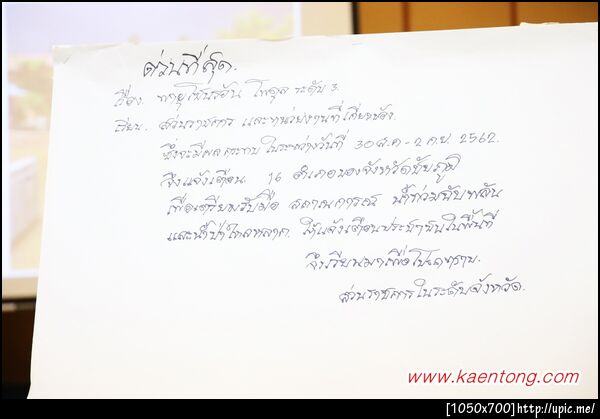 ด่วนที่สุด.
เรื่อง. พายุโซนร้อน โพดุล ระดับ 3.
เรียน. ส่วนราชการ และหน่วยงานที่เกี่ยวข้อง.
ซึ่งจะมีผลกระทบ ในระหว่างวันที่ 30 ส.ค - 2 ก.ย. 2562.
จึงแจ้งเตือน 16 อำเภอของจังหวัดชัยภูมิ
เพื่อเตรียมรับมือ สถานการณ์ น้ำท่วมฉับพลัน
และน้ำป่าไหลหลาก ให้แจ้งเตือนประชาชนในพื้นที่
จึงเรียนมาเพื่อโปรดทราบ.
ส่วนราชการในระดับจังหวัด.
www.kaentong.com
[1050x700]http://upic.me/